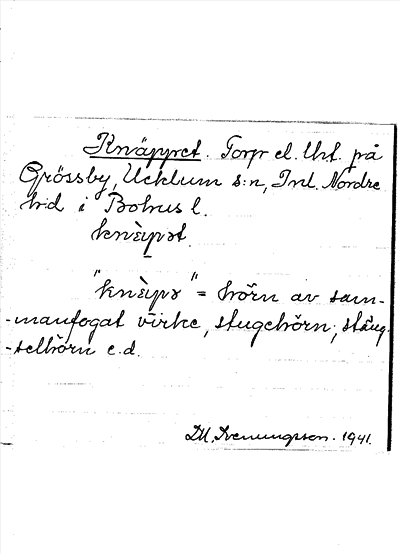 Knäppret. Torp el. Uht. på
Grössby, Ucklum s:n, Inl. Nordre
hd i Bohus l.
knὲıpət
"knὲıpə" = hörn av sam-
-manfogat virke, stugehörn, stäng-
-selhörn e.d.
D.U. Svenungsson. 1941.